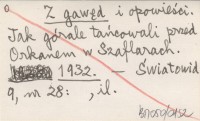 Z gawęd i opowieści.
Jak górale tańcowali przed
Orkanem w Szaflarach.
1932. - Światowid
9, nr 28: , il.